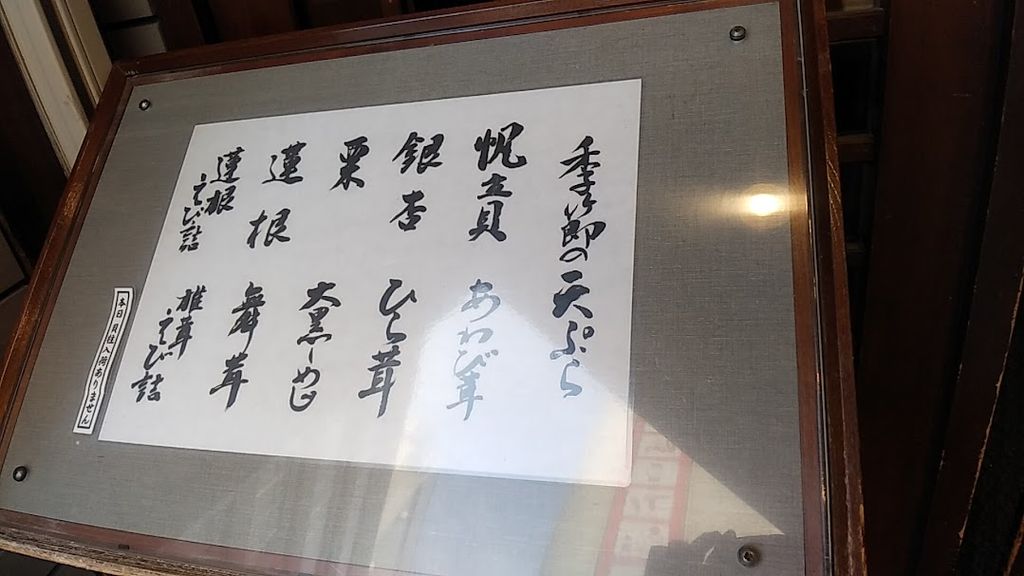 季節の天ぷら
帆立貝
あわび茸
銀杏
ひら茸
栗
大黒しめじ
蓮根
舞茸
蓮根えび詰
椎茸えび詰
本日 貝柱入荷ありません